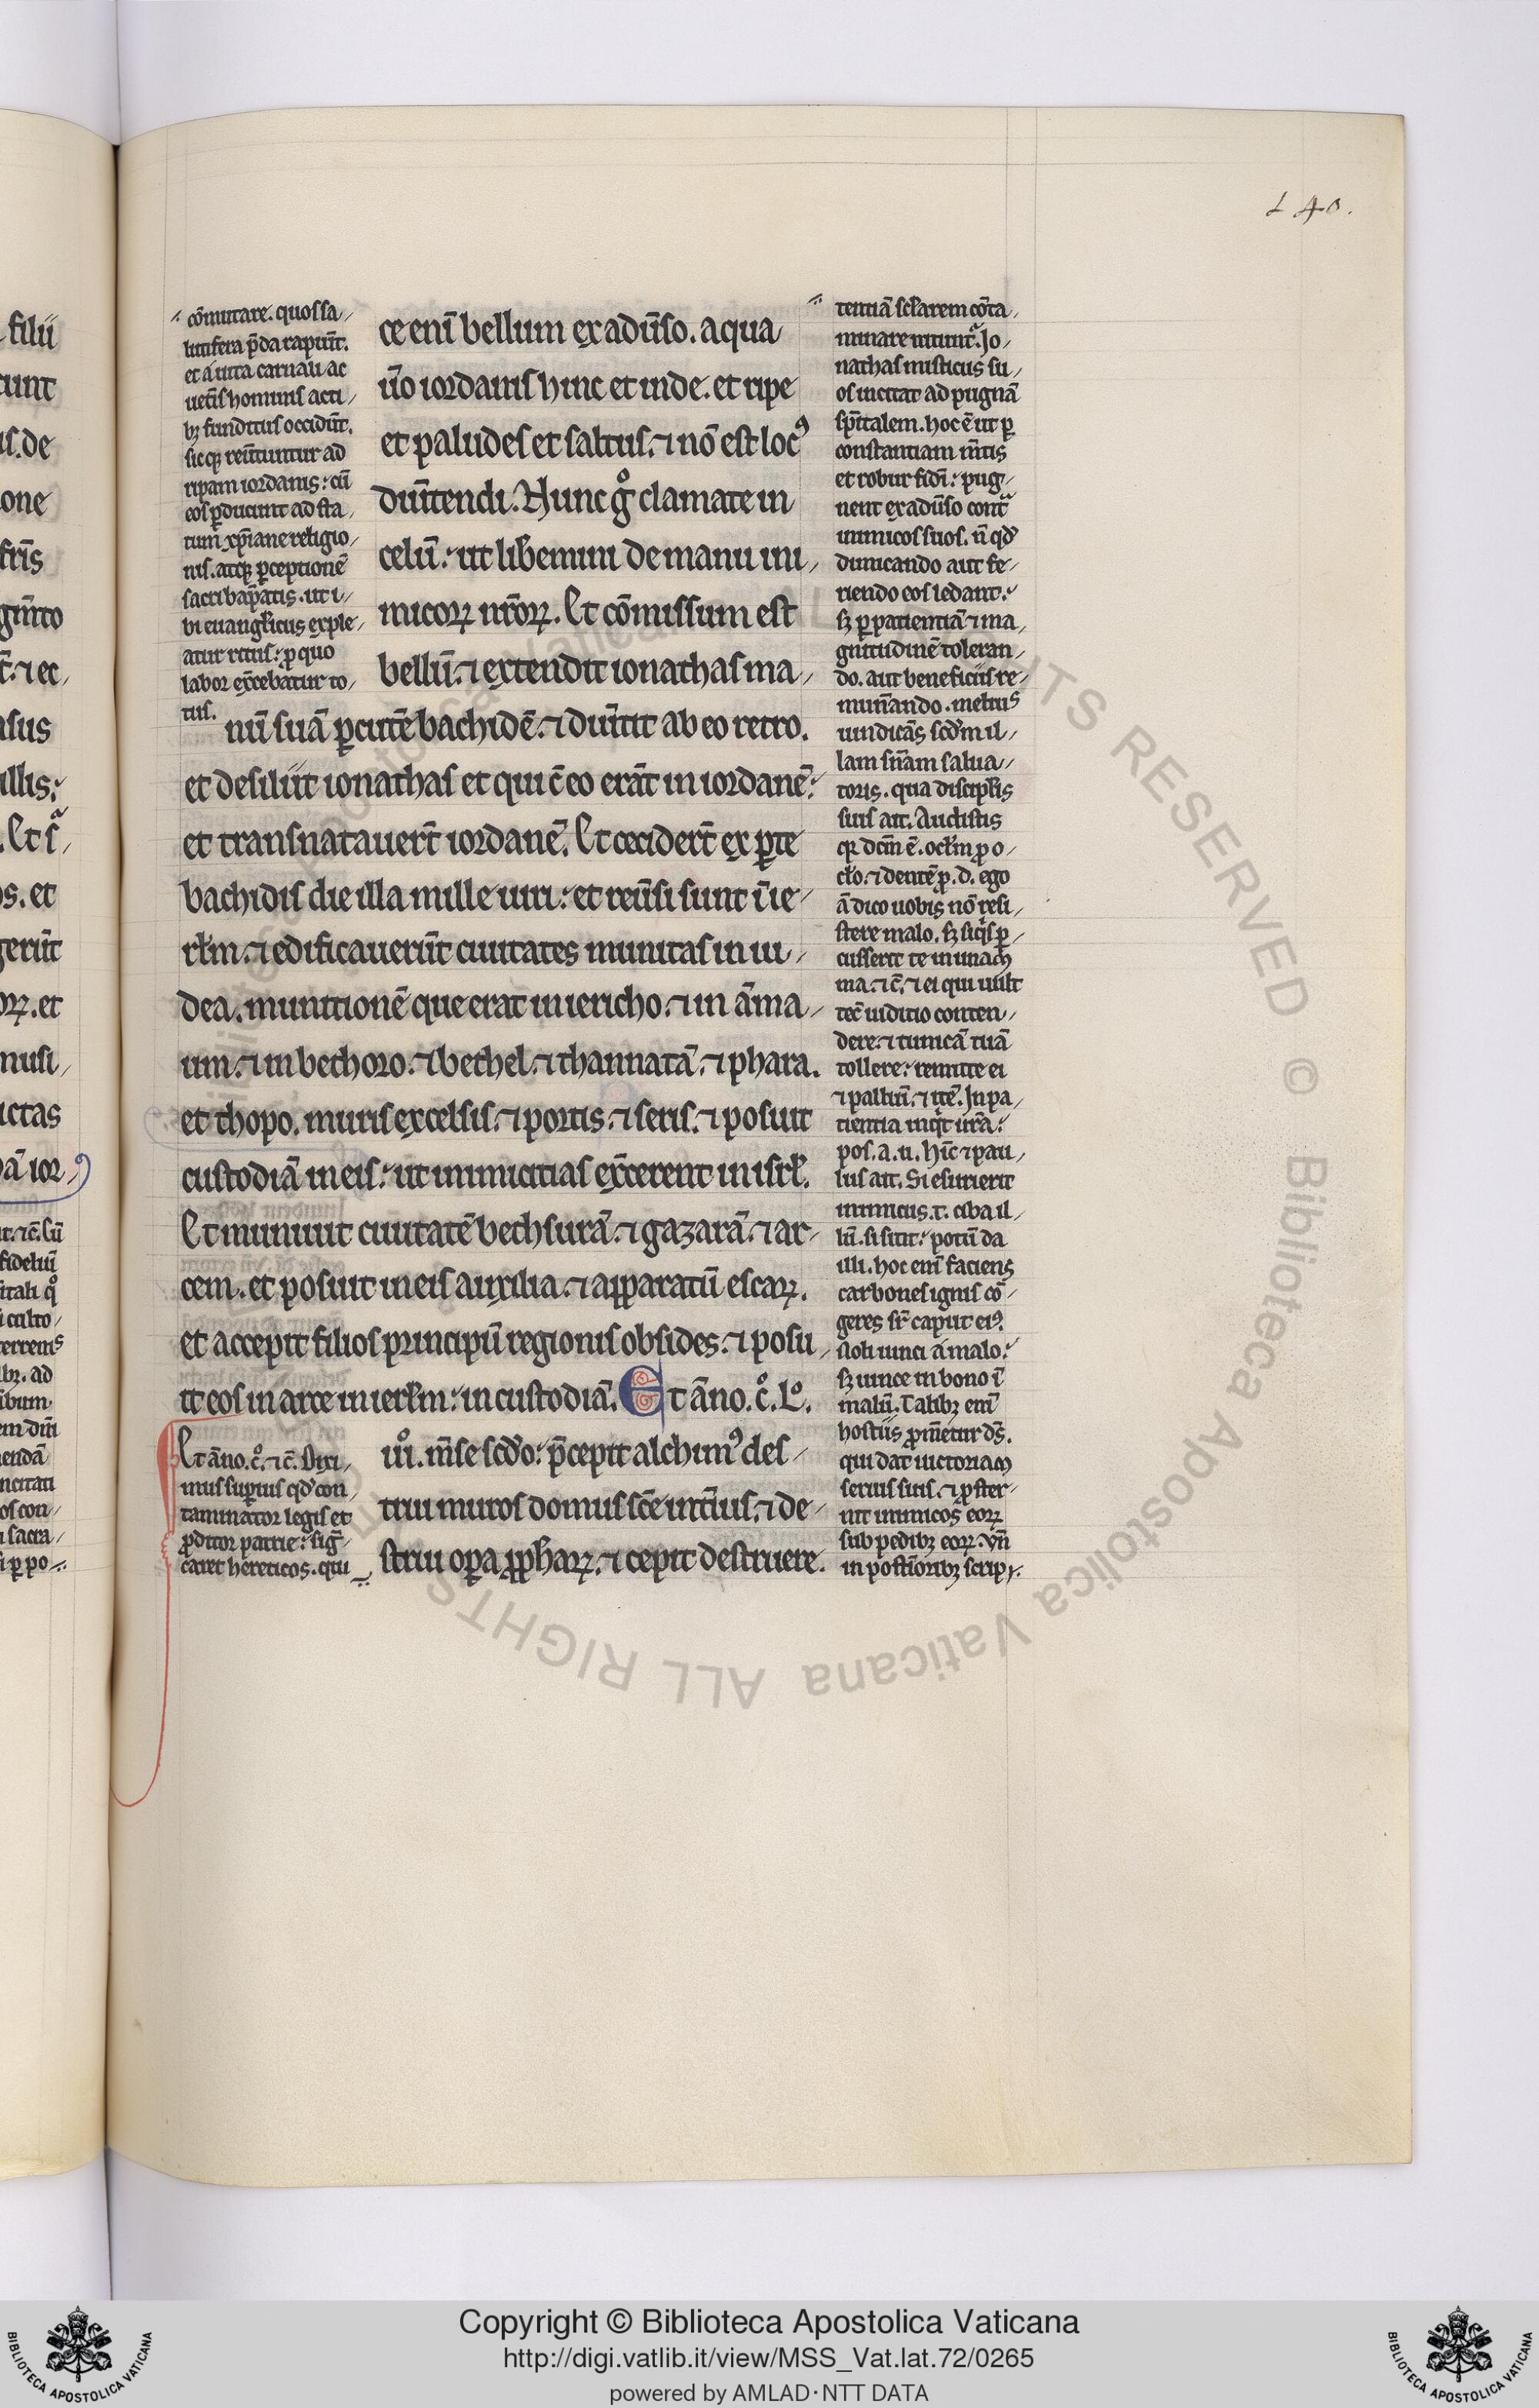 140.
cōmutare. quos sa/
lutifera p̄da rapiūt.
et a uita carnali ac
uet̄is hominis acti/
bȝ funditus occidūt.
sicqȝ reūtuntur ad
ripam iordanis: cū
eos ꝑducunt ad sta/
tum xp̄iane religio/
nis. atqȝ ꝑceptionē
sacri bap̄atis. ut i/
bi euanglicus exple/
atur ritus: ꝑ quo
labor ex̄cebatur to/
tus.
ce enī bellum ex adūso. aqua
ūo iordanis hinc et inde. et ripe
et paludes et saltus. ⁊ nō est locꝰ
diūtendi. Nunc gͦ clamate in
celū: ut libemini de manu ini/
micoꝝ nr̄oꝝ. Et cōmissum est
bellū. ⁊ extendit ionathas ma/
nū suā ꝑcutē bachidē. ⁊ diūtit ab eo retro.
et desiliit ionathas et qui c̄ eo erāt in iordanē:
et transnatauert̄ iordanē. Et cecidert̄ ex ꝑte
bachidis die illa mille uiri: et reūsi sunt ī ie/
rłm. ⁊ edificauerūt ciuitates munitas in iu/
dea. munitionē que erat in iericho. ⁊ in āma/
um. ⁊ in bethoro. ⁊ bethel. ⁊ thannatā. ⁊ phara.
et thopo. muris excelsis. ⁊ portis. ⁊ seris. ⁊ posuit
custodiā in eis: ut inimicitias ex̄cerent in isrł.
Et muniuit ciuitatē bethsurā. ⁊ gazarā. ⁊ ar/
cem. et posuit in eis auxilia. ⁊ apparatū escaꝝ.
et accepit filios principū regionis obsides. ⁊ posu/
it eos in arce in ierłm: in custodiā. Et āno. cͦ. Lͦ.
iiiͦ. m̄se scd̄o: p̄cepit alchimꝰ des/
trui muros domus sc̄e int̄ius. ⁊ de/
strui oꝑa ꝓphaꝝ. ⁊ cepit destruere.
Et āno. cͦ. ⁊c̄. Dixi/
mus suꝑius qd̓ con/
taminator legis et
ꝓditor patrie: sig̅/
caret hereticos. qui
tentiā scłarem cōta/
minare nitunt̄. Jo/
nathas misticus su/
os incitat ad pugnā
sp̄italem. hoc ē ut ꝑ
constantiam m̄tis
et robur fidī: pug/
nent ex adūso cont̄
inimicos suos. n̄ qd̓
dimicando aut fe/
riendo eos ledant:
sȝ ꝑ patientiā ⁊ ma/
gnitudinē toleran/
do. aut beneficiis re/
mun̄ando. meliꝰ
uindicās scd̄m il/
lam sn̄iam salua/
toris. qua discipłis
suis ait. Audistis
qꝛ dcm̄ ē. ocłm ꝓ o/
cło. ⁊ dentē ꝓ. d. ego
ā dico uobis nō resi/
stere malo. sȝ siqͥs ꝑ/
cusserit te in unaꝫ
ma. ⁊c̄. ⁊ ei qui uult
tec̄ iuditio conten/
dere. ⁊ tunicā tuā
tollere: remitte ei
⁊ palliū. ⁊ itē. In pa/
tientia inqͥt ur̄a:
pos. a. u. hīc ⁊ pau/
lus ait. Si esurierit
inimicus. t. ciba il/
lū. si sitit: potū da
illi. hoc enī faciens
carbones ignis cō/
geres sr̄ caput eiꝰ.
Noli uinci a malo:
sȝ uince in bono ī
malū. Talibȝ enī
hostiis ꝓm̄etur ds̄.
qui dat uictoriaꝫ
seruis suis. ⁊ ꝓster/
nit inimicos eoꝝ
sub pedibȝ eoꝝ. Vn̄
in post̄ioribȝ scrip
Copyright © Biblioteca Apostolica Vaticana
http://digi.vatlib.it/view/MSS_Vat.lat.72/0265
powered by AMLAD·NTT DATA